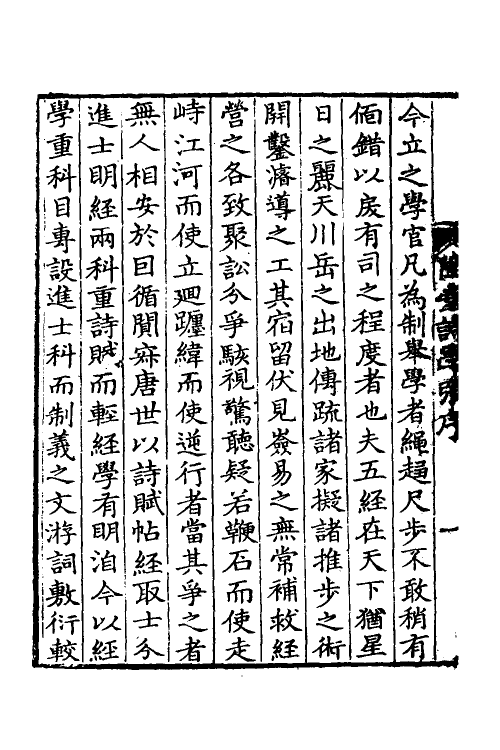 今立之學官凡為制舉學者繩趨尺步不敢稍有
偭錯以戾有司之程度者也夫五經在天下猶星
日之麗天川岳之出地傳疏諸家擬諸推步之術
開鑿濬導之工其宿留伏見僉易之無常補救經
營之各致聚訟兮爭駭視驚聽疑若鞭石而使走
峙江河而使立廻躔緯而使逆行者當其爭之者
無人相安於因循闃寂唐世以詩賦帖經取士今
進士明經兩科重詩賦而輕經學有明洎今以經
學重科目專設進士科而制義之文浮詞敷衍較
詩學
序
一